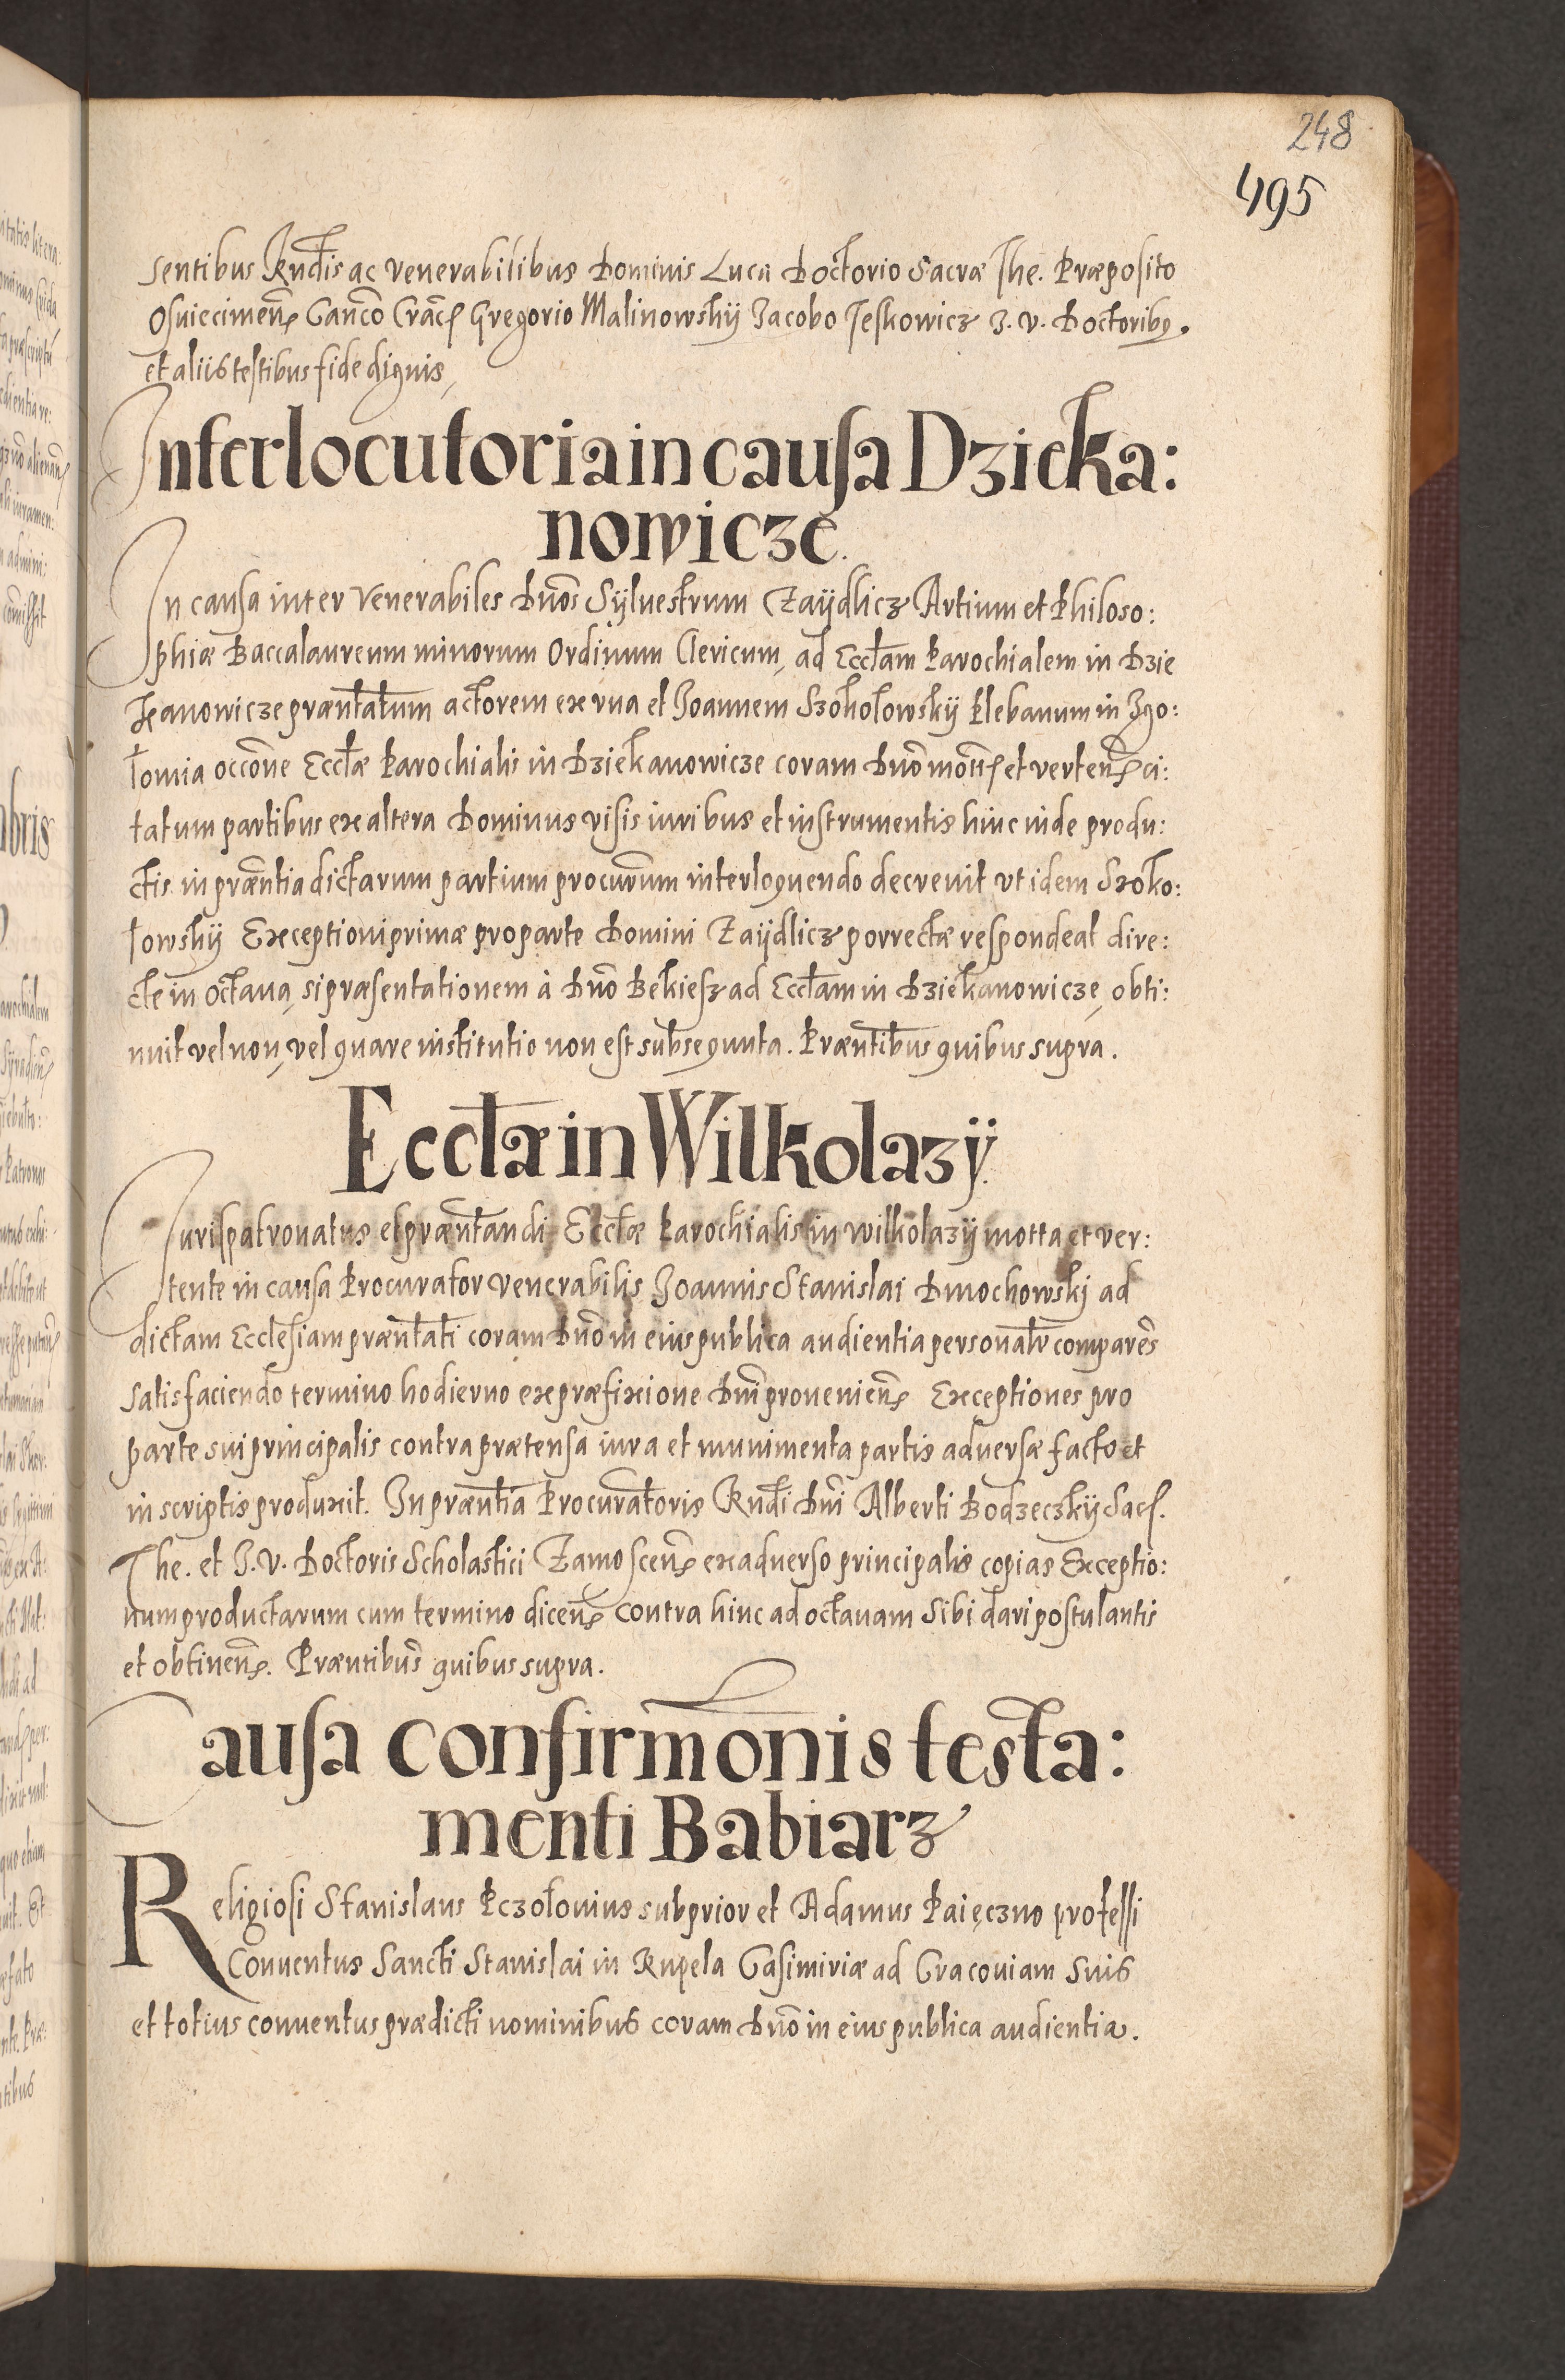 248
495
sentibus Rndis ac venerabilibus Dominis Luca Doctorio Sacræ The. Præposito
Osviecimen̄ Canco Crac Gregorio Malinowskÿ Jacobo Jeskowicz J. V. Doctoribq.
et aliis testibus fide dignis,
Interlocutoria in causa Dzieka:
nowicze.
In causa inter Venerabiles Dnos Sÿluestrum Zaÿdlicz Artium et Philoso:
phiæ Baccalaureum minorum Ordinum Clericum, ad Ecctam Parochialem in Dzie
kanowicze præntatum actorem ex vna et Joannem Szokolowskÿ Plebanum in Jgo:
lomia occone Ecctæ Parochialis in Dziekanowicze coram Dno mon et verten ci:
tatum partibus ex altera Dominus visis iuribus et instrumentis hinc inde produ:
ctis in præntia dictarum partium procurum interloquendo decrevit vt idem Szoko:
lowskÿ Exceptioni primæ pro parte Domini Zaÿdlicz porrectæ respondeat dire:
cte in octaua, si præsentationem à Dno Bekiesz ad Ecctam in Dziekanowicze, obti:
nuit vel non, vel quare institutio non est subsequuta. Præntibus quibus supra.
Ecctæ in Wilkolazÿ.
Jurispatronatus et præntandi Ecctæ Parochialis in Wilkolazÿ motta et ver:
tente in causa Procurator venerabilis Joannis Stanislai Dmochowskj ad
dictam Ecclesiam præntati coram Dno in eius publica audientia personatr compares
satisfaciendo termino hodierno ex præfixione Dni provenien Exceptiones pro
parte sui principalis contra prætensa iura et munimenta partis adversæ facto et
in scriptis produxit. In præntia Procuratoris Rndi Dni Alberti Bodzeczkÿ Sac.
The. et J. V. Doctoris Scholastici Zamoscen ex adverso principalis copias Exceptio:
num productarum cum termino dicen contra hinc ad octauam sibi dari postulantis
et obtinen. Præntibus quibus supra.
Causa confirmonis testa:
menti Babiarz
Religiosi Stanislaus Pczolouius subprior et Adamus Paięczno professi
Conuentus Sancti Stanislai in Rupela Casimiriæ ad Cracouiam suis
et totius conuentus prædicti nominibus coram Dno in eius publica audientia.